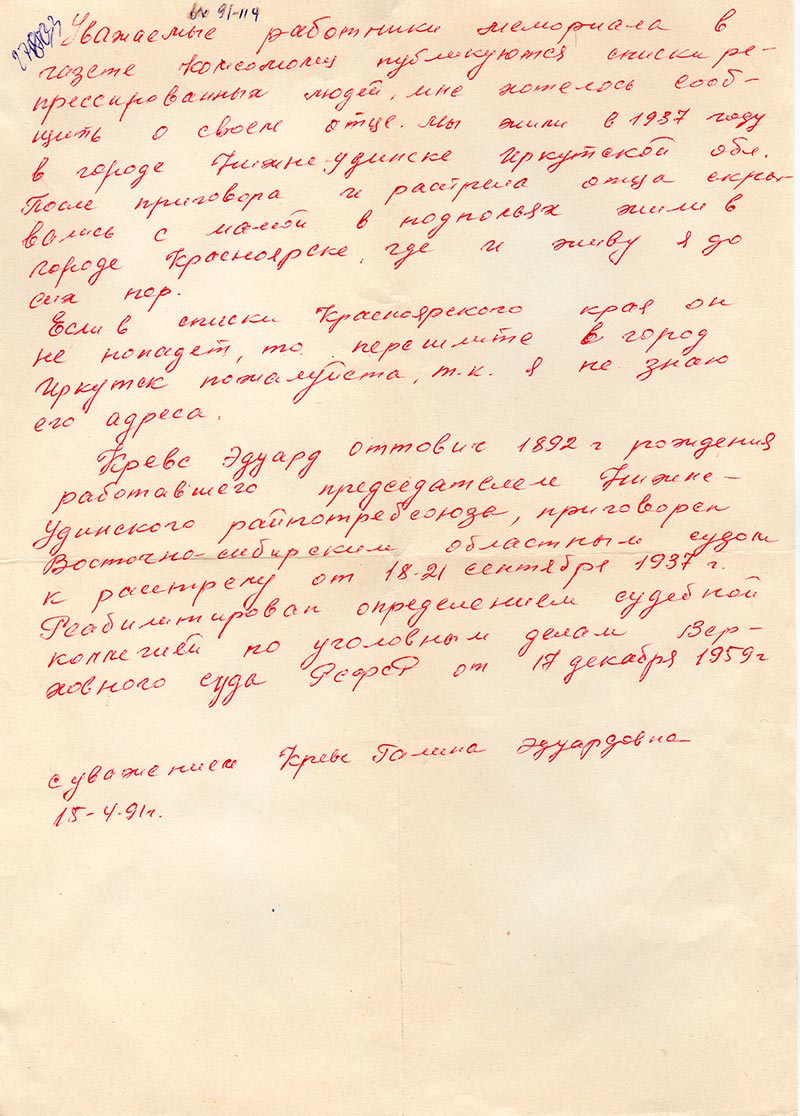 № 91-114
Уважаемые работники мемориала в
газете Комсомолец публикуются списки ре-
прессированных людей, мне хотелось сооб-
щить о своем отце. Мы жили в 1937 году
в городе Нижне-удинске Иркутской обл.
После приговора и растрела отца скры-
вались с мамой в подпольях жили в
городе Красноярске, где и живу я до
сих пор.
Если в списки Красноярского края он
не попадет, то перешлите в город
Иркутск пожалуйста, т.к. я не знаю
его адреса.
Кревс Эдуард Оттович 1892 г рождения
работавшего председателем Нижне-
Удинского райпотребсоюза, приговорен
Восточно-сибирским областным судом
к расстрелу от 18-21 сентября 1937 г.
Реабилитирован определением судебной
коллегией по уголовным делам Вер-
ховного суда РСФСР от 17 декабря 1959г
с уважением Кревс Галина Эдуардовна
15-4-91г.